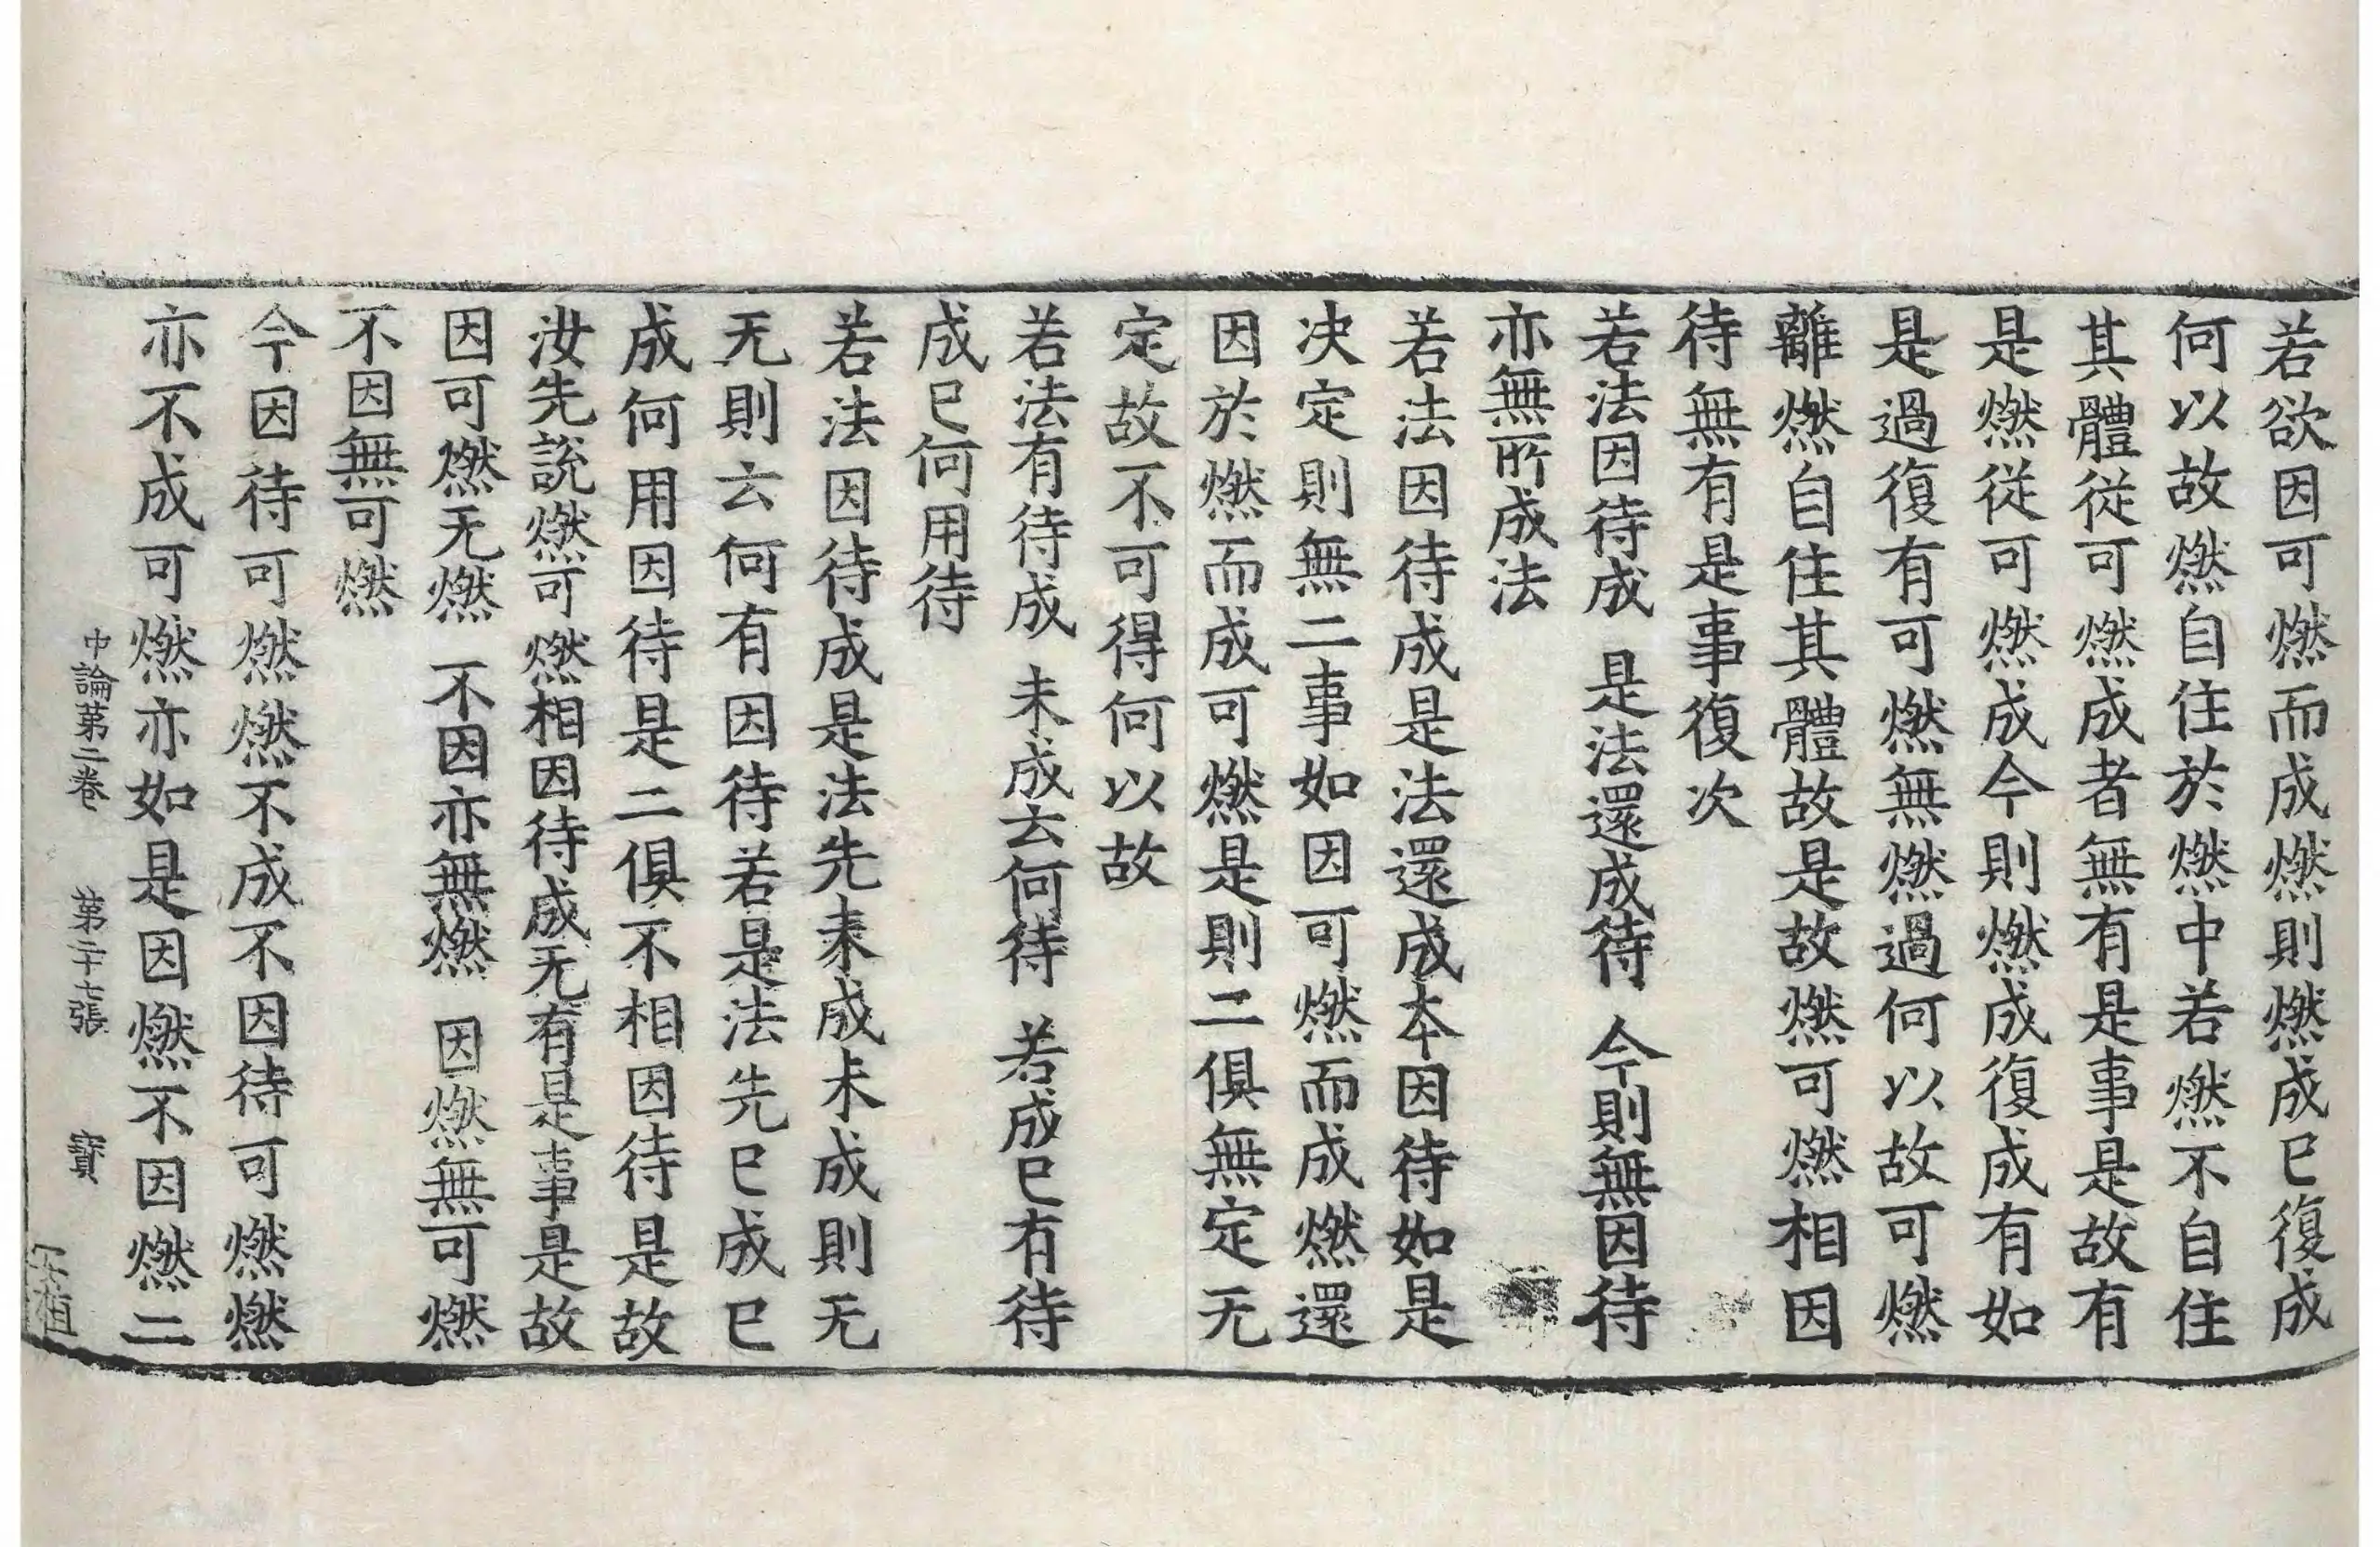 若欲因可燃而成燃則燃成已復成
何以故燃自住於燃中若燃不自住
其體從可燃成者無有是事是故有
是燃從可燃成今則燃成復成有如
是過復有可燃無燃過何以故可燃
離燃自住其體故是故燃可燃相因
待無有是事復次
若法因待成 是法還成待 今則無因待
亦無所成法
若法因待成是法還成夲因待如是
决定則無二事如因可燃而成燃還
因於燃而成可燃是則二俱無定无
定故不可得何以故
若法有待成 未成云何待 若成已有待
成已何用待
若法因待成是法先未成未成則无
无則云何有因待若是法先已成已
成何用因待是二俱不相因待是故
汝先說燃可燃相因待成无有是事是故
因可燃无燃 不因亦無燃 因燃無可燃
不因無可燃
今因待可燃燃不成不因待可燃燃
亦不成可燃亦如是因燃不因燃二
中論第二卷 第二十七張 寳